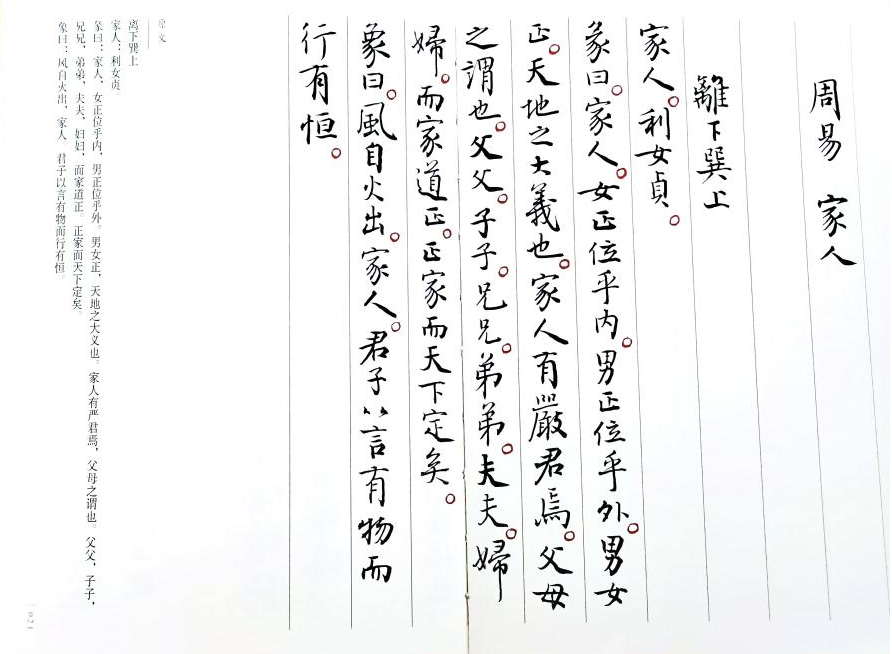 周易 家人
離下巽上
家人。利女貞。
彖曰。家人。女正位乎内。男正位乎外。男女
正。天地之大義也。家人有嚴君焉。父母
之謂也。父父。子子。兄兄。弟弟。夫夫。婦
婦。而家道正。正家而天下定矣。
象曰。風自火出。家人。君子以言有物而
行有恒。
原文
离下巽上
家人：利女贞
彖曰：家人，女正位乎内，男正位乎外。男女正，天地之大义也。家人有严君焉，父母之谓也。父父，子子，
兄兄，弟弟，夫夫，妇妇，而家道正。正家而天下定矣。
象曰：风自火出，家人。君子以言有物而行有恒。